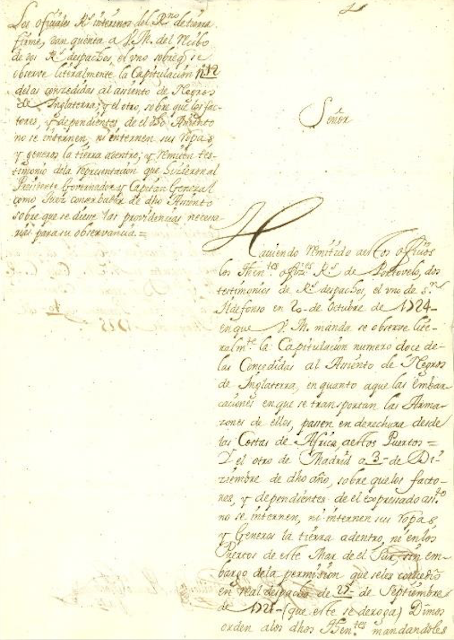 Los oficiales R.s interinos del R.no de tierra
firme, dan quenta a V.M. del recibo
de dos R.s despachos, el uno sobre q.e se
observe literalmente la Capitulacion 12
de las concedidas al asiento de Negros
de Inglaterra, y el otro, sobre que los fac-
tores, y dependientes de el dho Assiento
no se internen, ni internen sus Ropas,
y generos la tierra adentro, y remiten tes-
timonio de la representacion que hizieron al
Presidente Governador y Capitan General
como Juez conservador de dho Asiento
sobre que se diese las providencias necesa-
rias para su observancia. =
Señor
Haviendo remitido a estos officios
los then.tes offiz.s R.s de Portovelo, dos
testimonios de R.s despachos, el uno de S.n
Ildefonso en 20 de Octubre de 1724
en que V.M. manda se observe lite-
ralm.te la Capitulacion numero doce de
las Concedidas al Assiento de Negros
de Inglaterra, en quanto a que las Embar-
caciones en que se transportan las Arma-
zones de ellos, pasen en derechura desde
las Costas de Africa a estos Puertos =
Y el otro de Madrid a 3 de Di-
ziembre de dho año, sobre que los facto-
res, y dependientes de el expresado asi.to
no se internen, ni internen sus Ropas,
y Generos la tierra adentro, ni en los
Puertos de este Mar de el Sur, sin em-
bargo de la permision que se les concedio
en real despacho de 27 de Septiembre
de (que este se deroga) Dimos
orden a los dhos then.tes mandandoles